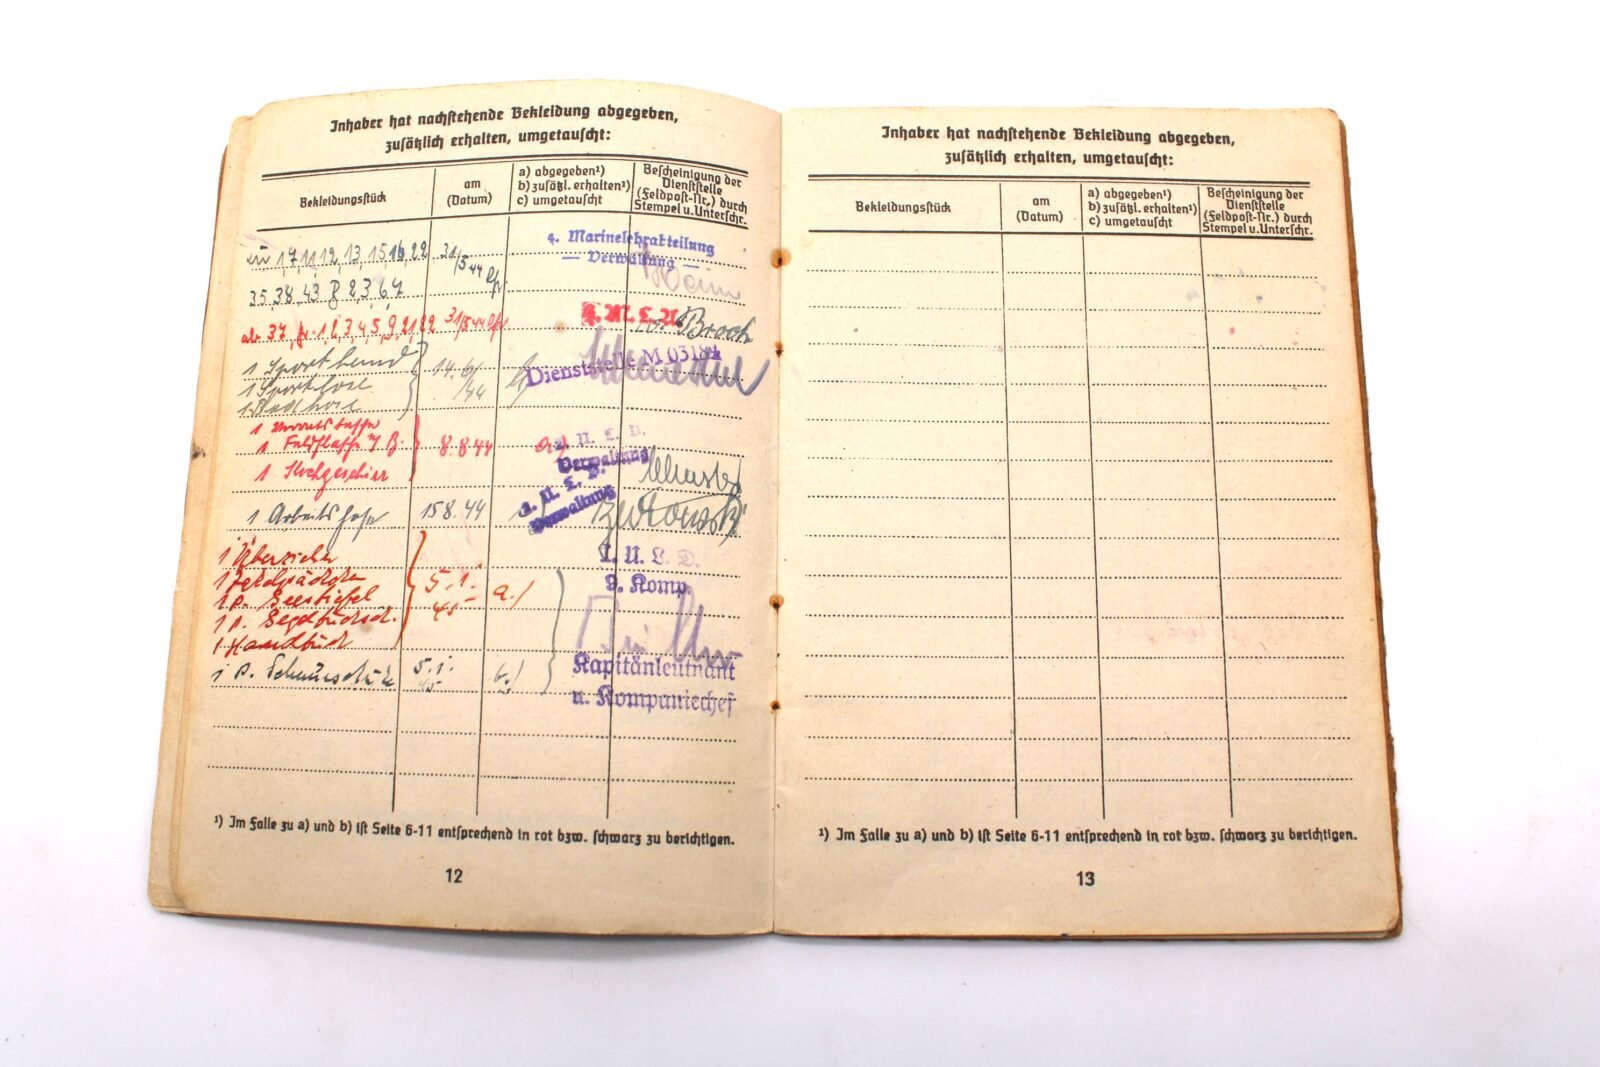 Inhaber hat nachstehende Bekleidung abgegeben,
zusätzlich erhalten, umgetauscht:
Bekleidungsstück
am
(Datum)
a) abgegeben¹)
b) zusätzl. erhalten¹)
c) umgetauscht
Bescheinigung der
Dienststelle
(Feldpost-Nr.) durch
Stempel u. Unterschr.
4. Marinelehrabteilung
— Verwaltung —
31/5 44
35, 38, 43, 8, 2, 3, 6, 7
ab 37 1, 2, 3, 4, 5, 9, 21, 22 31/5 44
4. M. L. A.
Brock
1 Sporthemd
1 Sporthose
1 Badhose
14.6/44
Dienststelle M 03184
1 Feldflasche
1 Kochgeschirr
8.8.44
a)
Verwaltung
1 Arbeitshose 15 8.44
Verwaltung
1 Überzieher
1 p. Seestiefel
1 Handtuch
5.1.
45
a.)
1. U. L. D.
9. Komp.
1 p. Schnürschuhe 5.1. 45 b.)
Kapitänleutnant
u. Kompaniechef
¹) Im Falle zu a) und b) ist Seite 6-11 entsprechend in rot bzw. schwarz zu berichtigen.
12
Inhaber hat nachstehende Bekleidung abgegeben,
zusätzlich erhalten, umgetauscht:
Bekleidungsstück
am
(Datum)
a) abgegeben¹)
b) zusätzl. erhalten¹)
c) umgetauscht
Bescheinigung der
Dienststelle
(Feldpost-Nr.) durch
Stempel u. Unterschr.
¹) Im Falle zu a) und b) ist Seite 6-11 entsprechend in rot bzw. schwarz zu berichtigen.
13